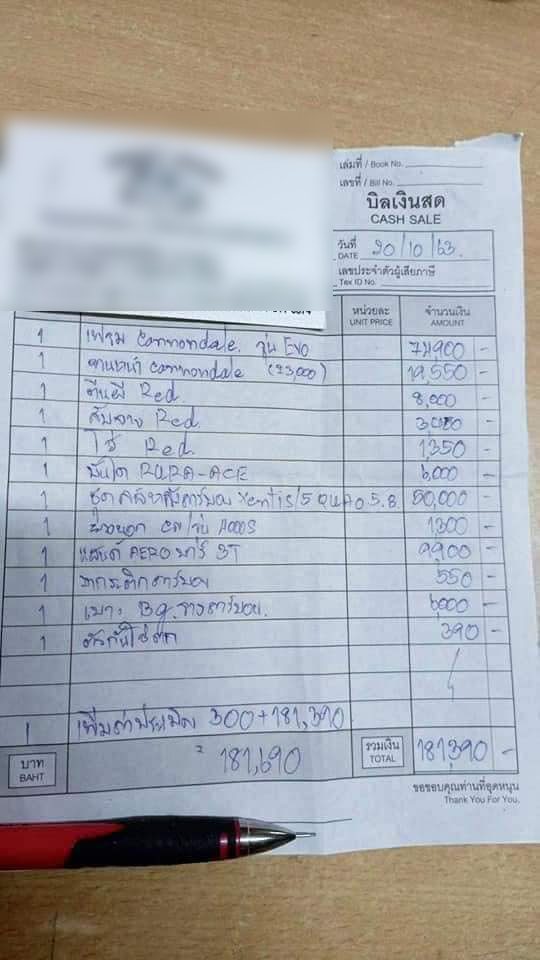 เล่มที่ / Book No.
เลขที่ / Bill No.
บิลเงินสด
CASH SALE
วันที่ DATE 20/10/63.
เลขประจำตัวผู้เสียภาษี
Tex ID No.
หน่วยละ UNIT PRICE จำนวนเงิน AMOUNT
1 เฟรม Cannondale. รุ่น EVO 74,900 -
1 จานหน้า Cannondale (23,000) 19,550 -
1 ตีนผี Red. 8,000 -
1 Red. -
1 โซ่ Red. 1,350 -
1 RURA-ACE 6,000 -
1 Xentis/ 50,000 -
1 ยางนอก รุ่น A000S 1,300 -
1 แฮนด์ AERO บาร์ 3T 9,900 -
1 ขากระติกคาร์บอน 550 -
1 เบาะ รางคาร์บอน. 6,000 -
1 ตัวกันโซ่ตก 390 -
1 เพิ่มค่าประเมิน 300+181,390
บาท BAHT = 181,690 รวมเงิน TOTAL 181,390 -
ขอขอบคุณท่านที่อุดหนุน
Thank You For You.